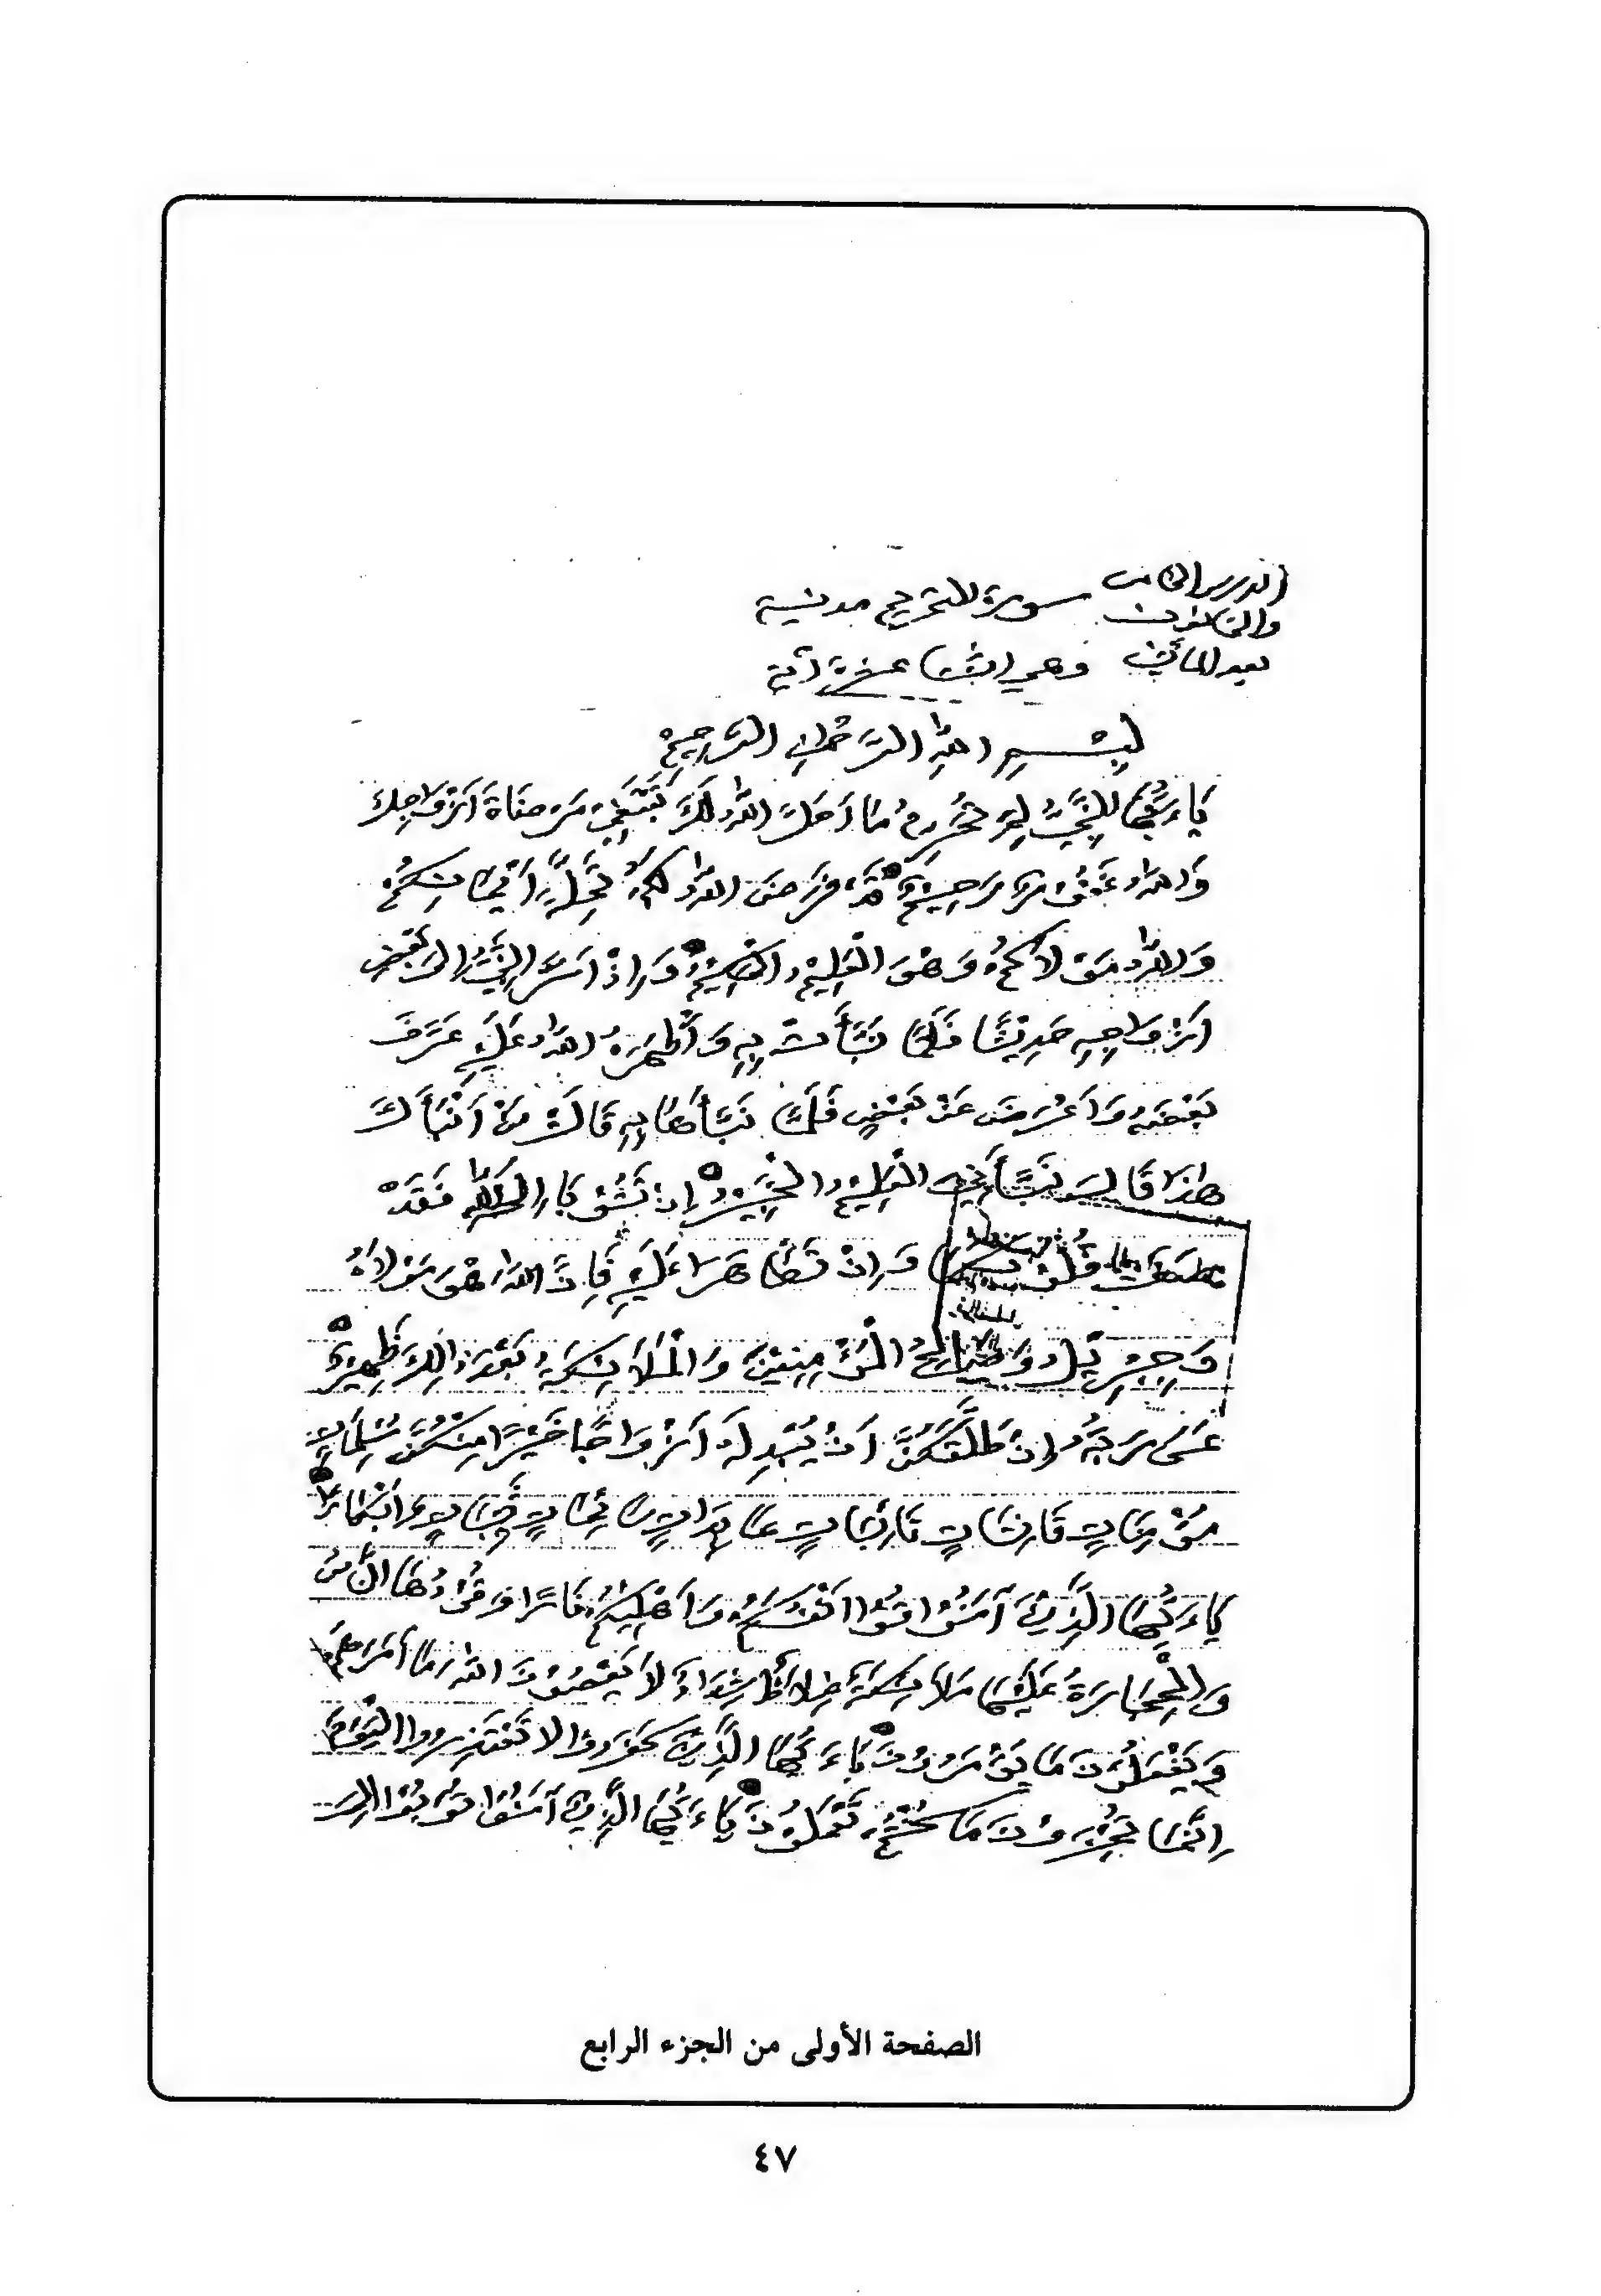 الدرس الخامس
والثمانون
سورة التحريم مدنية
بعد المائتين وهي اثنتا عشرة آية
بِسْمِ اللهِ الرَّحْمٰنِ الرَّحِيمِ
يَاءَيُّهَا النَّبِيُّ لِمَ تُحَرِّمُ مَا أَحَلَّ اللهُ لَكَ تَبْتَغِي مَرْضَاةَ أَزْوَاجِكَ
وَاللهُ غَفُورٌ رَحِيمٌ قَدْ فَرَضَ اللهُ لَكُمْ تَحِلَّةَ أَيْمَانِكُمْ
وَاللهُ مَوْلاكُمْ وَهُوَ الْعَلِيمُ الْحَكِيمُ وَإِذْ أَسَرَّ النَّبِيُّ إِلَى بَعْضِ
أَزْوَاجِهِ حَدِيثًا فَلَمَّا نَبَّأَتْ بِهِ وَأَظْهَرَهُ اللهُ عَلَيْهِ عَرَّفَ
بَعْضَهُ وَأَعْرَضَ عَنْ بَعْضٍ فَلَمَّا نَبَّأَهَا بِهِ قَالَتْ مَنْ أَنْبَأَكَ
هٰذَا قَالَ نَبَّأَنِيَ الْعَلِيمُ الْخَبِيرُ إِنْ تَتُوبَا إِلَى اللهِ فَقَدْ
قُلُوبُكُمَا وَإِنْ تَظَاهَرَا عَلَيْهِ فَإِنَّ اللهَ هُوَ مَوْلاَهُ
وَجِبْرِيلُ وَصَالِحُ الْمُؤْمِنِينَ وَالْمَلاَئِكَةُ بَعْدَ ذٰلِكَ ظَهِيرٌ
عَسَى رَبُّهُ إِنْ طَلَّقَكُنَّ أَنْ يُبْدِلَهُ أَزْوَاجًا خَيْرًا مِنْكُنَّ مُسْلِمَاتٍ
مُؤْمِنَاتٍ قَانِتَاتٍ تَائِبَاتٍ عَابِدَاتٍ سَائِحَاتٍ ثَيِّبَاتٍ وَأَبْكَارًا
يَاءَيُّهَا الَّذِينَ آمَنُوا قُوا أَنْفُسَكُمْ وَأَهْلِيكُمْ نَارًا وَقُودُهَا النَّاسُ
وَالْحِجَارَةُ عَلَيْهَا مَلاَئِكَةٌ غِلاَظٌ شِدَادٌ لاَ يَعْصُونَ اللهَ مَا أَمَرَهُمْ
وَيَفْعَلُونَ مَا يُؤْمَرُونَ يَاءَيُّهَا الَّذِينَ كَفَرُوا لاَ تَعْتَذِرُوا الْيَوْمَ
إِنَّمَا تُجْزَوْنَ مَا كُنْتُمْ تَعْمَلُونَ يَاءَيُّهَا الَّذِينَ آمَنُوا تُوبُوا إِلَى
الصفحة الأولى من الجزء الرابع
٤٧